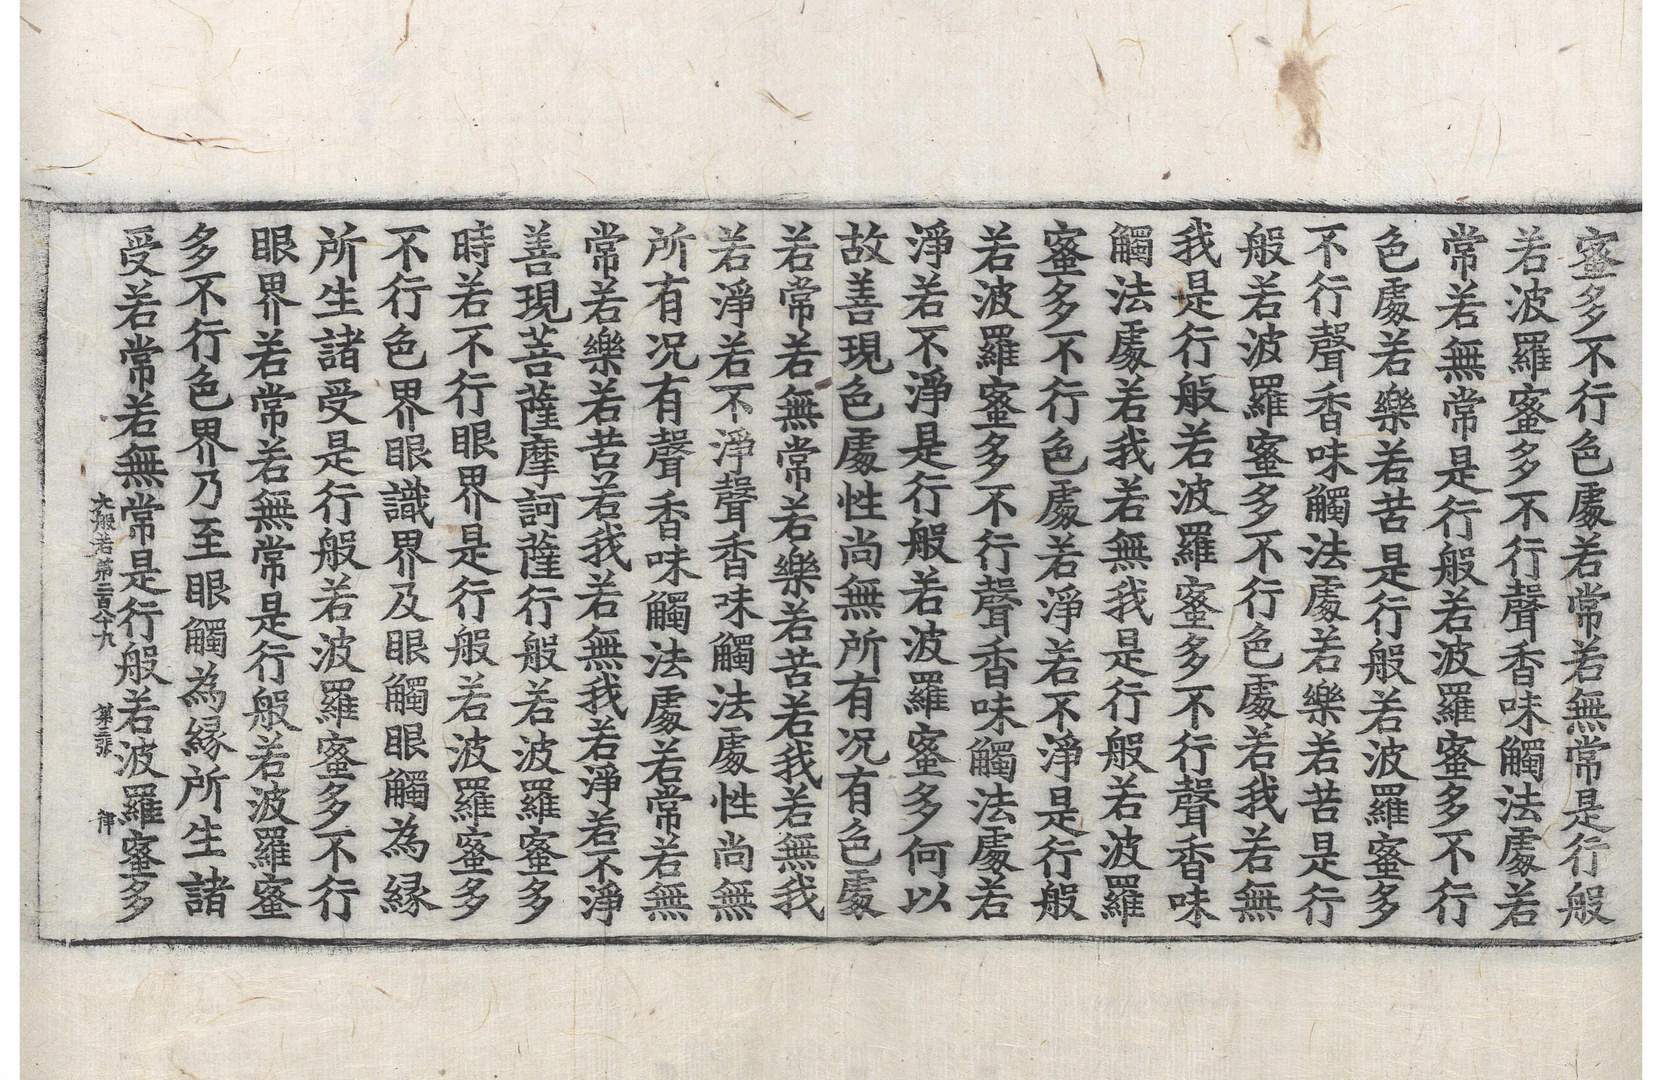 蜜多不行色處若常若無常是行般
若波羅蜜多不行聲香味觸法處若
常若無常是行般若波羅蜜多不行
色處若樂若苦是行般若波羅蜜多
不行聲香味觸法處若樂若苦是行
般若波羅蜜多不行色處若我若無
我是行般若波羅蜜多不行聲香味
觸法處若我若無我是行般若波羅
蜜多不行色處若淨若不淨是行般
若波羅蜜多不行聲香味觸法處若
淨若不淨是行般若波羅蜜多何以
故善現色處性尚無所有况有色處
若常若無常若樂若苦若我若無我
若淨若不淨聲香味觸法處性尚無
所有况有聲香味觸法處若常若無
常若樂若苦若我若無我若淨若不淨
善現菩薩摩訶薩行般若波羅蜜多
時若不行眼界是行般若波羅蜜多
不行色界眼識界及眼觸眼觸為緣
所生諸受是行般若波羅蜜多不行
眼界若常若無常是行般若波羅蜜
多不行色界乃至眼觸為緣所生諸
受若常若無常是行般若波羅蜜多
大般若第二百八十九 第三張 律